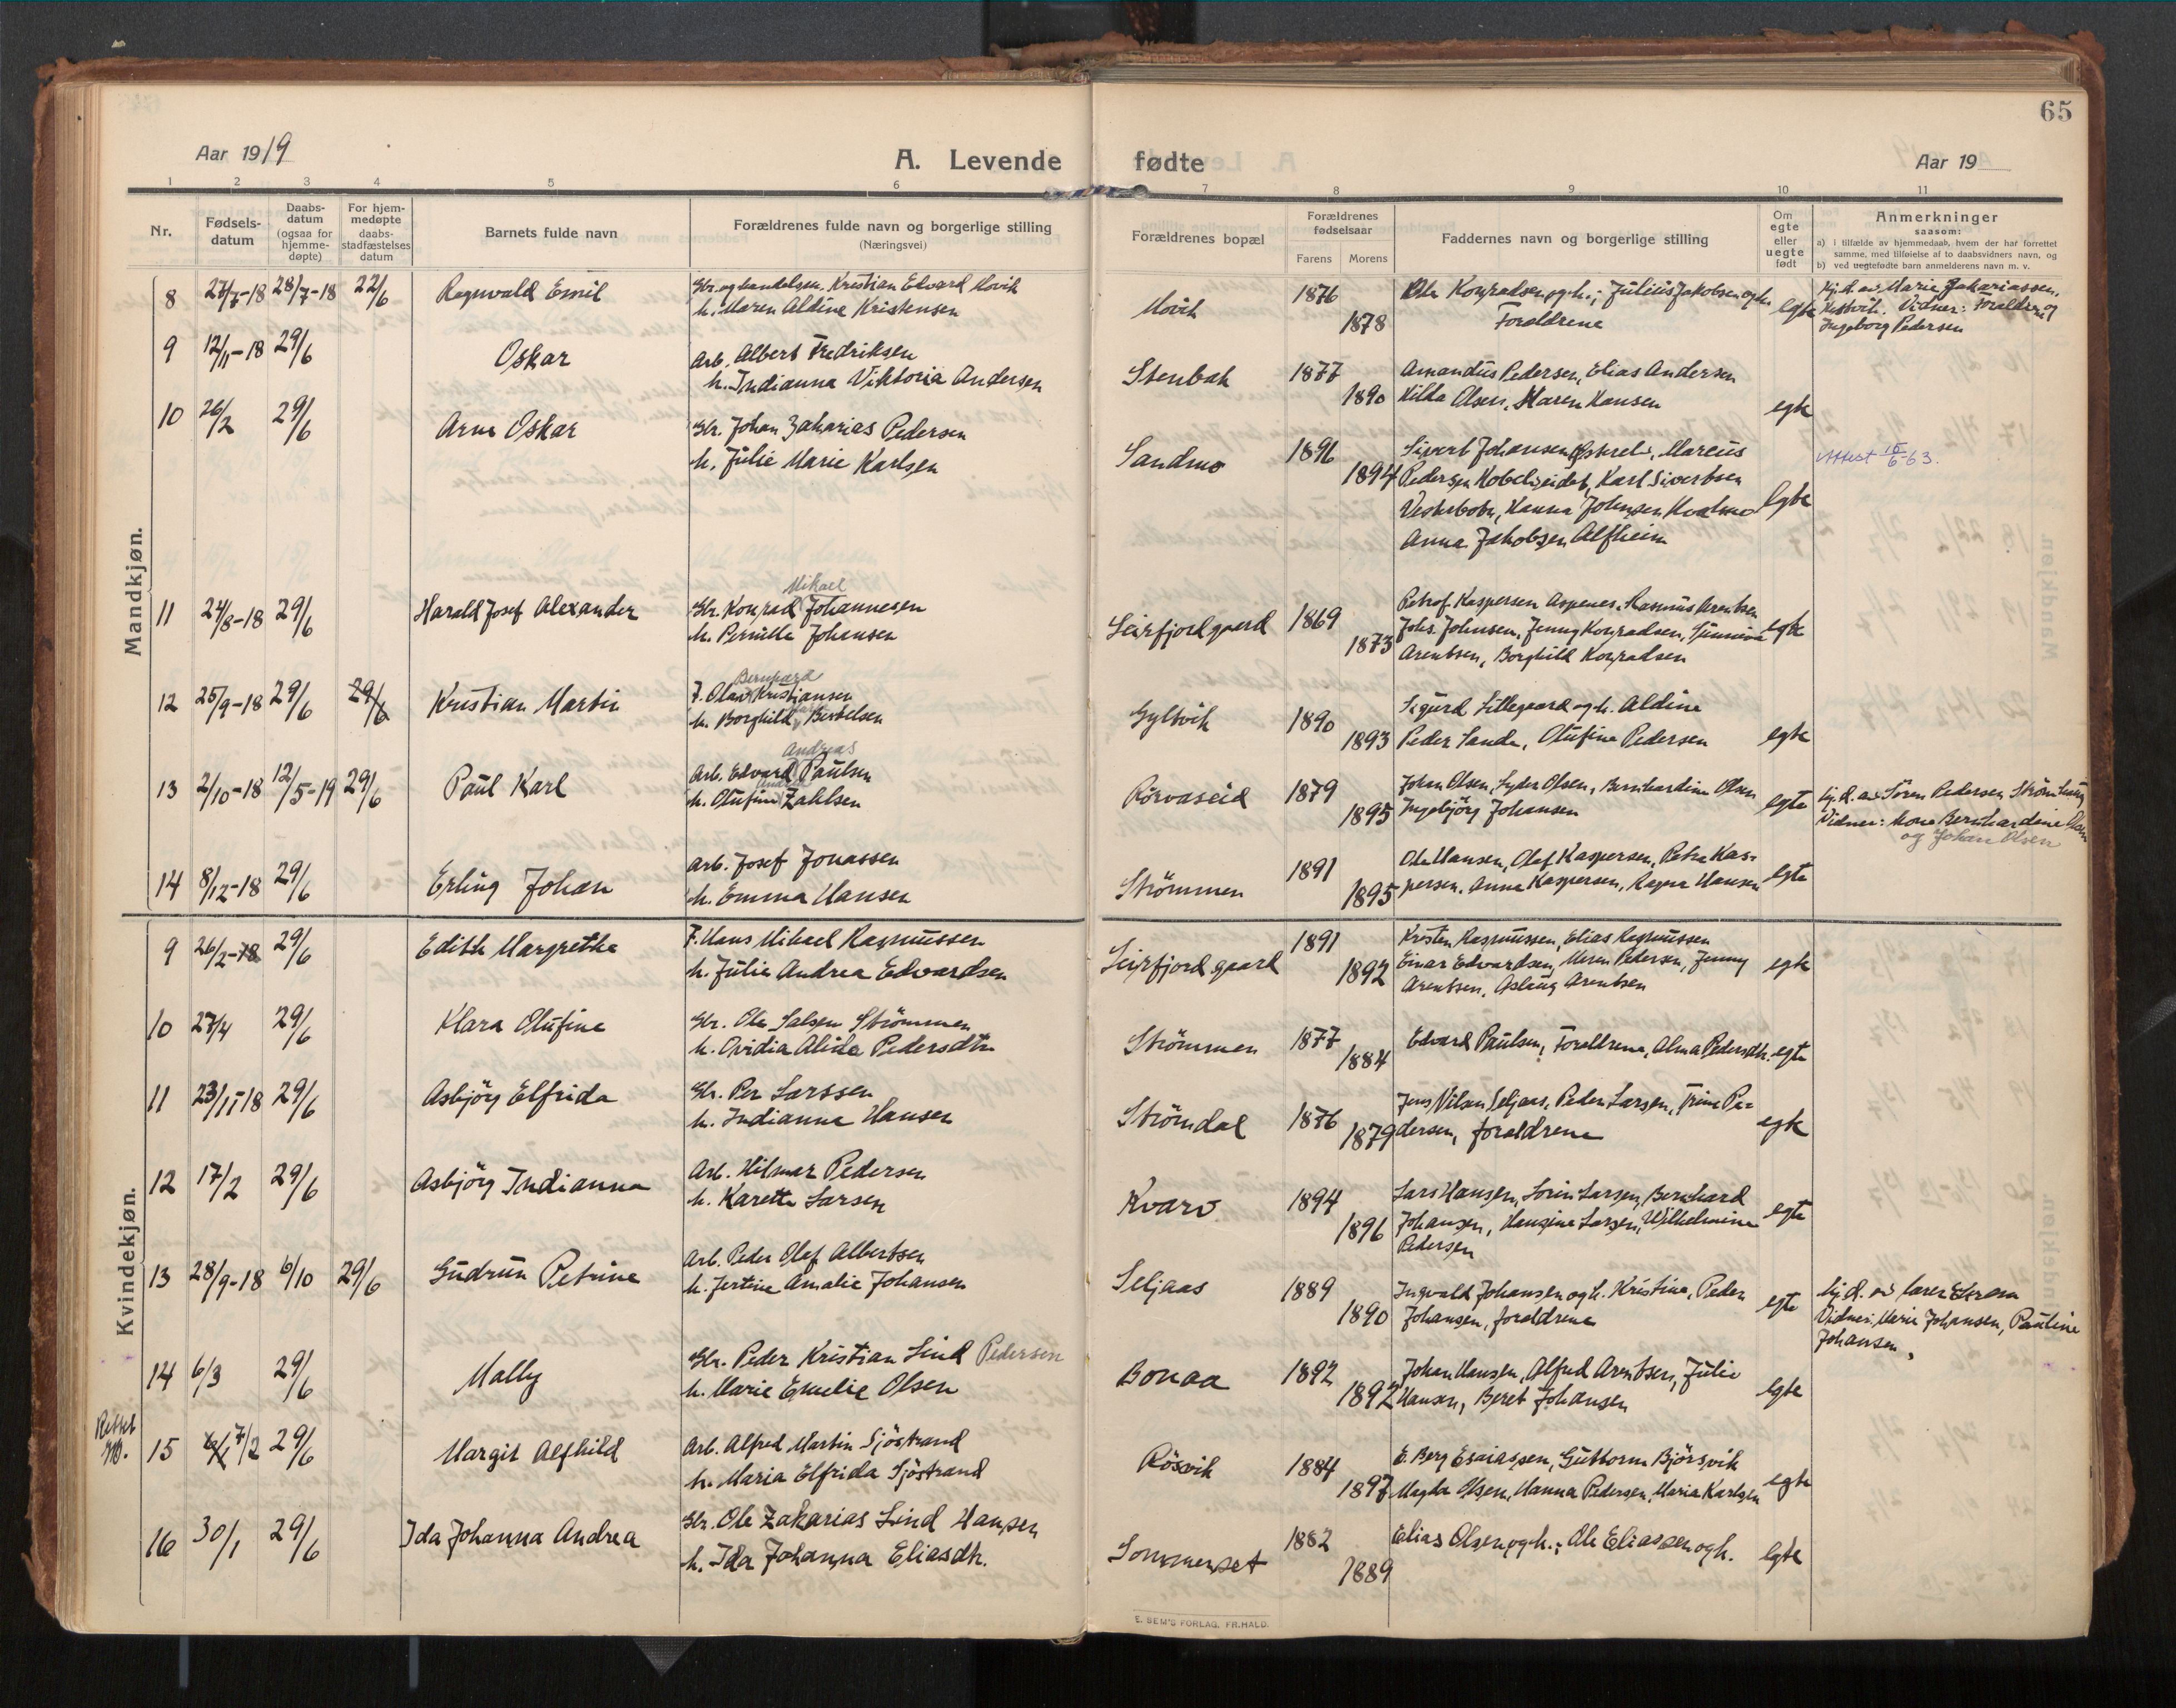 65
Aar 1919
A. Levende fødte
Aar 19
1 2 3 4 5 6 7 8 9 10 11
Nr.
Fødsels-
datum
Daabs-
datum
(ogsaa for
hjemme-
døpte)
For hjem-
medøpte
daabs-
stadfæstelses
datum
Barnets fulde navn
Forældrenes fulde navn og borgerlige stilling
(Næringsvei)
Forældrenes bopæl
Forældrenes
fødselsaar
Farens Morens
Faddernes navn og borgerlige stilling
Om
egte
eller
uegte
født
Anmerkninger
saasom:
a) i tilfælde av hjemmedaab, hvem der har forrettet
samme, med tilføielse af to daabsvidners navn, og
b) ved uegtefødte barn anmelderens navn m. v.
Mandkjøn.
8 27/7-18 28/7-18 22/6 Ragnvald Emil
Gbr. og handelsm. Kristian Edvard Movik
h. Maren Aldine Kristensen
Movik 1876 1878
Ole Konradsen og h.; Julius Jakobsen og h.
Forældrene
egte
Hj. d. av Marie Zakariassen,
Vidner: Forældre og
Ingeborg Pedersen
9 12/11-18 29/6 Oskar
Arb. Albert Fredriksen
h. Indianna Viktoria Andersen
Stenbak 1877 1890
Amandus Pedersen, Elias Andersen
Hilda Olsen, Maren Hansen
egte
10 26/2 29/6 Arne Oskar
Gbr. Johan Zakarias Pedersen
h. Julie Marie Karlsen
Sandmo 1896 1894
Sivert Johansen, Marcus
Pedersen Kobelveidet, Karl Sivertsen
Vesterbotn, Hanna Johnsen
Anna Jakobsen Alfheim
egte
Attest 15/6-63.
11 24/8-18 29/6 Harald Josef Alexander
Mikael
Gbr. Konrad Johannesen
h. Pernille Johansen
Leirfjordgaard 1869 1873
Petrof Kaspersen Aspenes, Rasmus Arentsen
Johs. Johnsen, Jenny Konradsen,
Arentsen, Borghild Konradsen
egte
12 25/9-18 29/6 29/6 Kristian Martin
Bernhard
F. Olav Kristjansen
h. Borghild Bertelsen
Gyltvik 1890 1893
Sigurd Lillegaard og h. Aldine
Peder Sande, Olufine Pedersen
egte
13 2/10-18 12/5-19 29/6 Paul Karl
Andreas
Arb. Edvard Paulsen
h. Olufine Zahlsen
Rörvaseid 1879 1895
Johan Olsen, Syder Olsen, Bernhardine Olsen
Ingebjörg Johansen
egte
hj. d. av Sören Pedersen
Vidner: Kone Bernhardine Olsen
og Johan Olsen
14 8/12-18 29/6 Erling Johan
Arb. Josef Jonassen
h. Emma Hansen
Strömmen 1891 1895
Ole Hansen, Olaf Kaspersen, Petra Kas-
persen, Anna Kaspersen, Ragna Hansen
egte
Kvindekjøn.
9 26/2-18 29/6 Edith Margrethe
F. Hans Mikael Rasmussen
h. Julie Andrea Edvardsen
Leirfjordgaard 1891 1892
Kristen Rasmussen, Elias Rasmussen
Einar Edvardsen, Maren Pedersen, Jenny
Arentsen, Aslaug Arentsen
egte
10 27/4 29/6 Klara Olufine
Gbr. Ole Salsen Strömmen
h. Ovidia Alide Pedersdtr
Strömmen 1877 1884
Edvard Paulsen, Forældrene, Alma Pedersdtr.
egte
11 23/11-18 29/6 Asbjörg Elfrida
Gbr. Per Larssen
h. Indianna Hansen
Strömdal 1876 1879
Jens Nilsen Seljaas, Peder Larsen, Trine Pe-
dersen, forældrene
egte
12 17/2 29/6 Asbjörg Indianna
Arb. Hilmar Pedersen
h. Karette Larsen
Kvarv 1894 1896
Lars Hansen, Sörin Larsen, Bernhard
Johansen, Hansine Larsen, Wilhelmine
Pedersen
egte
13 28/9-18 6/10 29/6 Gudrun Petrine
Arb. Peder Olaf Albertsen
h. Jertine Amalie Johansen
Seljaas 1889 1890
Ingvald Johansen og h. Kristine, Peder
Johansen, forældrene
egte
hj. d. av lærer
Vidner: Marie Johansen, Pauline
Johansen.
14 6/3 29/6 Mally
Gbr. Peder Kristian Lind Pedersen
h. Marie Emelie Olsen
Bonaa 1892 1892
Johan Hansen, Alfred Arentsen, Julie
Hansen, Beret Johansen
egte
Rettet
15 7/2 29/6 Margit Alfhild
Arb. Alfred Martin Sjöstrand
h. Maria Elfrida Sjöstrand
Rösvik 1884 1897
E. Berg Esaiassen, Guttorm Björsvik
Magda Olsen, Hanna Pedersen, Maria Karlsen
egte
16 30/1 29/6 Ida Johanna Andrea
Gbr. Ole Zakarias Lind Hansen
h. Ida Johanna Eliasdtr.
Sommerset 1882 1889
Elias Olsen og h.; Ole Eliassen og h.
egte
E. SEM'S FORLAG, FR.HALD.